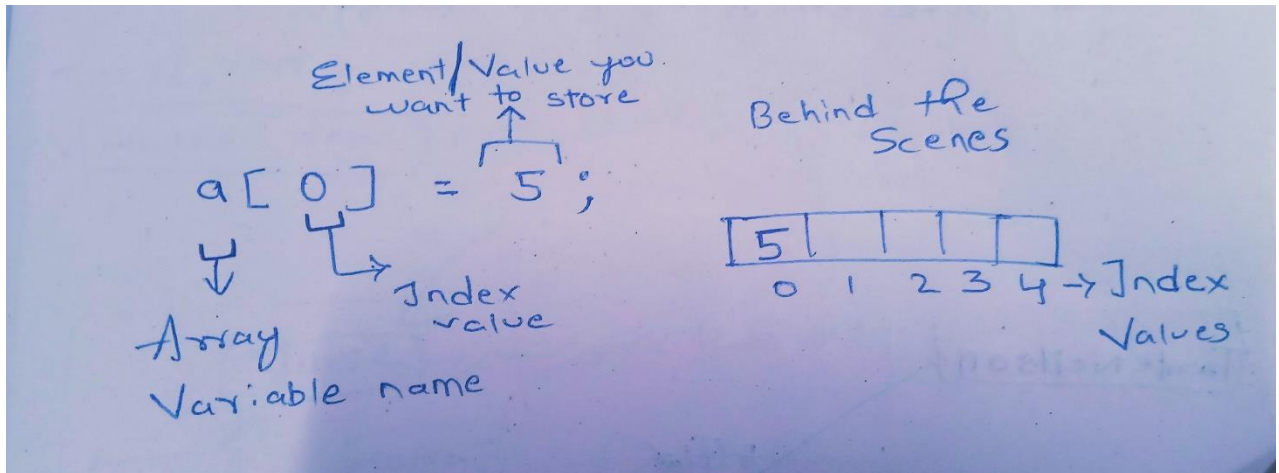 Element/Value you
want to store
a[0] = 5;
Index
value
Array
Variable name
Behind the
Scenes
5
0 1 2 3 4 → Index
Values